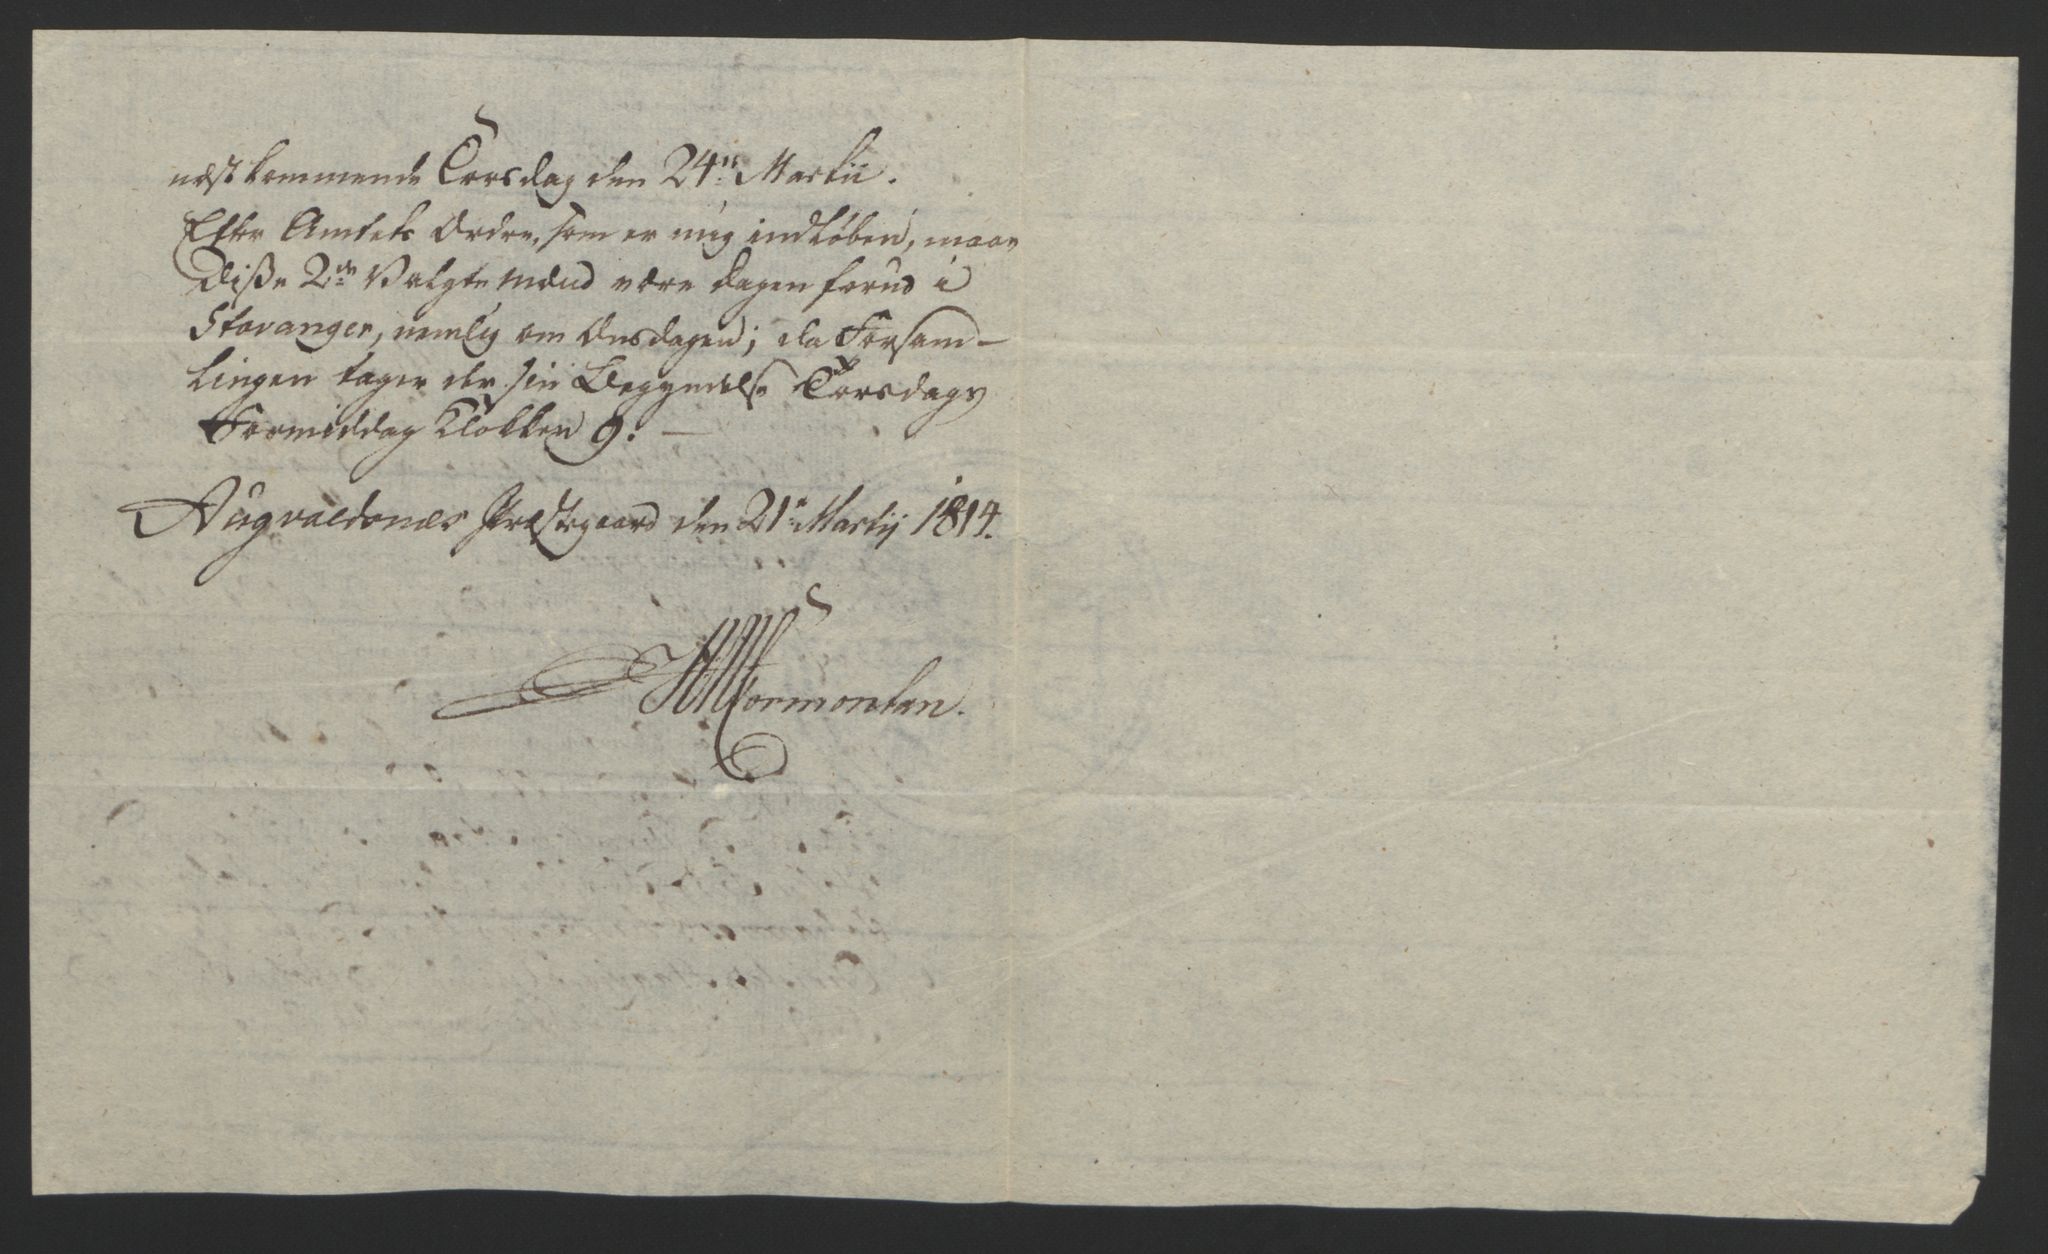 næstkommende Torsdag den 24de Martii.
Efter Amtets Ordre, som er mig indløben, maae
disse 2de Valgte Mænd være dagen forud i
Stavanger, nemlig om Onsdagen; da Forsam-
lingen tager der sin Begyndelse Torsdags
Formiddag Klokken 9. —
Augvaldsnæs Præstegaard den 21de Martij 1814.
Wormontan.